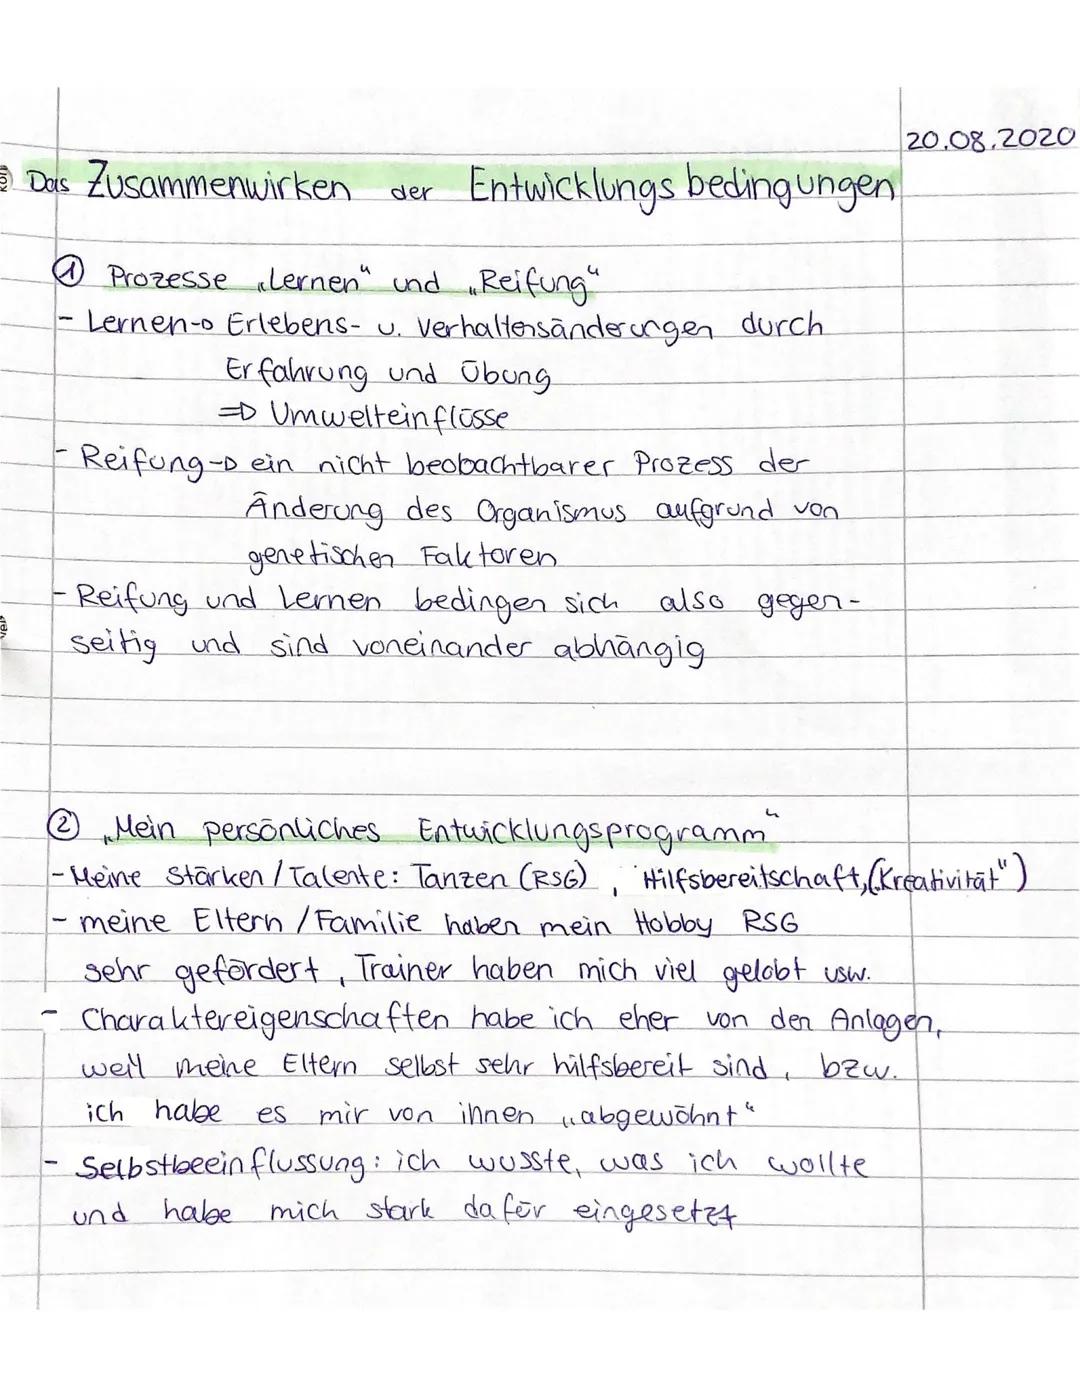 20.08.2020
Das Zusammenwirken der Entwicklungsbedingungen
① Prozesse „Lernen“ und „Reifung“
- Lernen-> Erlebens- u. Verhaltensänderungen durch
Erfahrung und Übung
=> Umwelteinflüsse
- Reifung-> ein nicht beobachtbarer Prozess der
Änderung des Organismus aufgrund von
genetischen Faktoren
- Reifung und Lernen bedingen sich also gegen-
seitig und sind voneinander abhängig
② „Mein persönliches Entwicklungsprogramm“
- Meine Stärken / Talente: Tanzen (RSG), Hilfsbereitschaft, („Kreativität")
- meine Eltern / Familie haben mein Hobby RSG
sehr gefördert, Trainer haben mich viel gelobt usw.
- Charaktereigenschaften habe ich eher von den Anlagen,
weil meine Eltern selbst sehr hilfsbereit sind, bzw.
ich habe es mir von ihnen „abgewöhnt“
- Selbstbeeinflussung: ich wusste, was ich wollte
und habe mich stark dafür eingesetzt